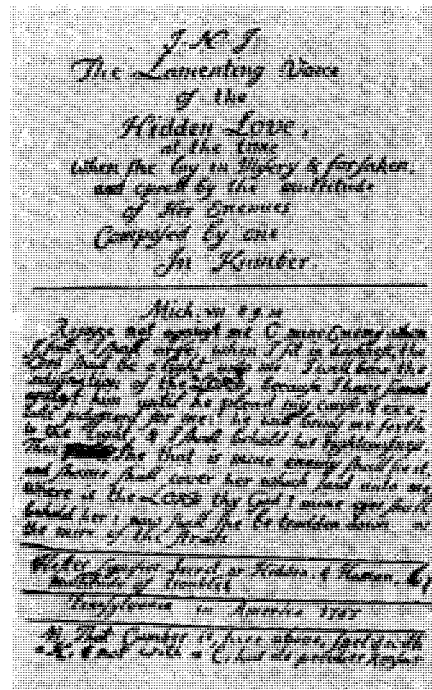 J. N. J.
The Lamenting Voice
of the
Hidden Love,
at the time
when she lay in Misery & forsaken,
and oprest by the multitude
of Her Enemies
Composed by one
In Kumber.
Mich. VII 8. 9. 10
Rejoyce not against me O mine Enemy when
I fall, I shall arise; when I sit in darkness, the
Lord shall be a light unto me. I will bear the
indignation of the LORD, because I have sinned
against him, until he plead my cause, & exe-
cute judgment for me: he will bring me forth
to the light, & I shall behold his righteousness.
Then she that is mine enemy shall see it,
and shame shall cover her which said unto me
where is the LORD thy God? mine eyes shall
behold her: now shall she be trodden down as
the mire of the streets
secret or Hidden, &
Pensylvania in America 1707
That Cumber is here above,
with a C, had its